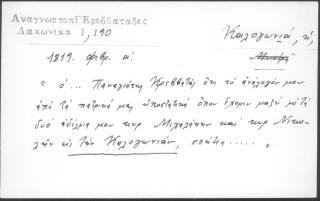 ΑναγνωστοπΓΚρεββαταδες
Λακωνικα 1,190
Καλογωνιά, ἡ,
1819. φεβρ. α΄
" ὁ ... Παναγιώτης Κρεββατᾶς ὅτι τὸ ἀνάλογόν μου
ἀπὸ τὰ πατρικά μας ὑποστατικά ὁποῦ ἔχομεν μαζὺ μὲ τὰ
δυό ἀδέλφια μου κυρ Μιχαλάκην καὶ κυρ Νικο-
λὴν εἰς τὴν Καλογωνιάν, σπίτια ..... "